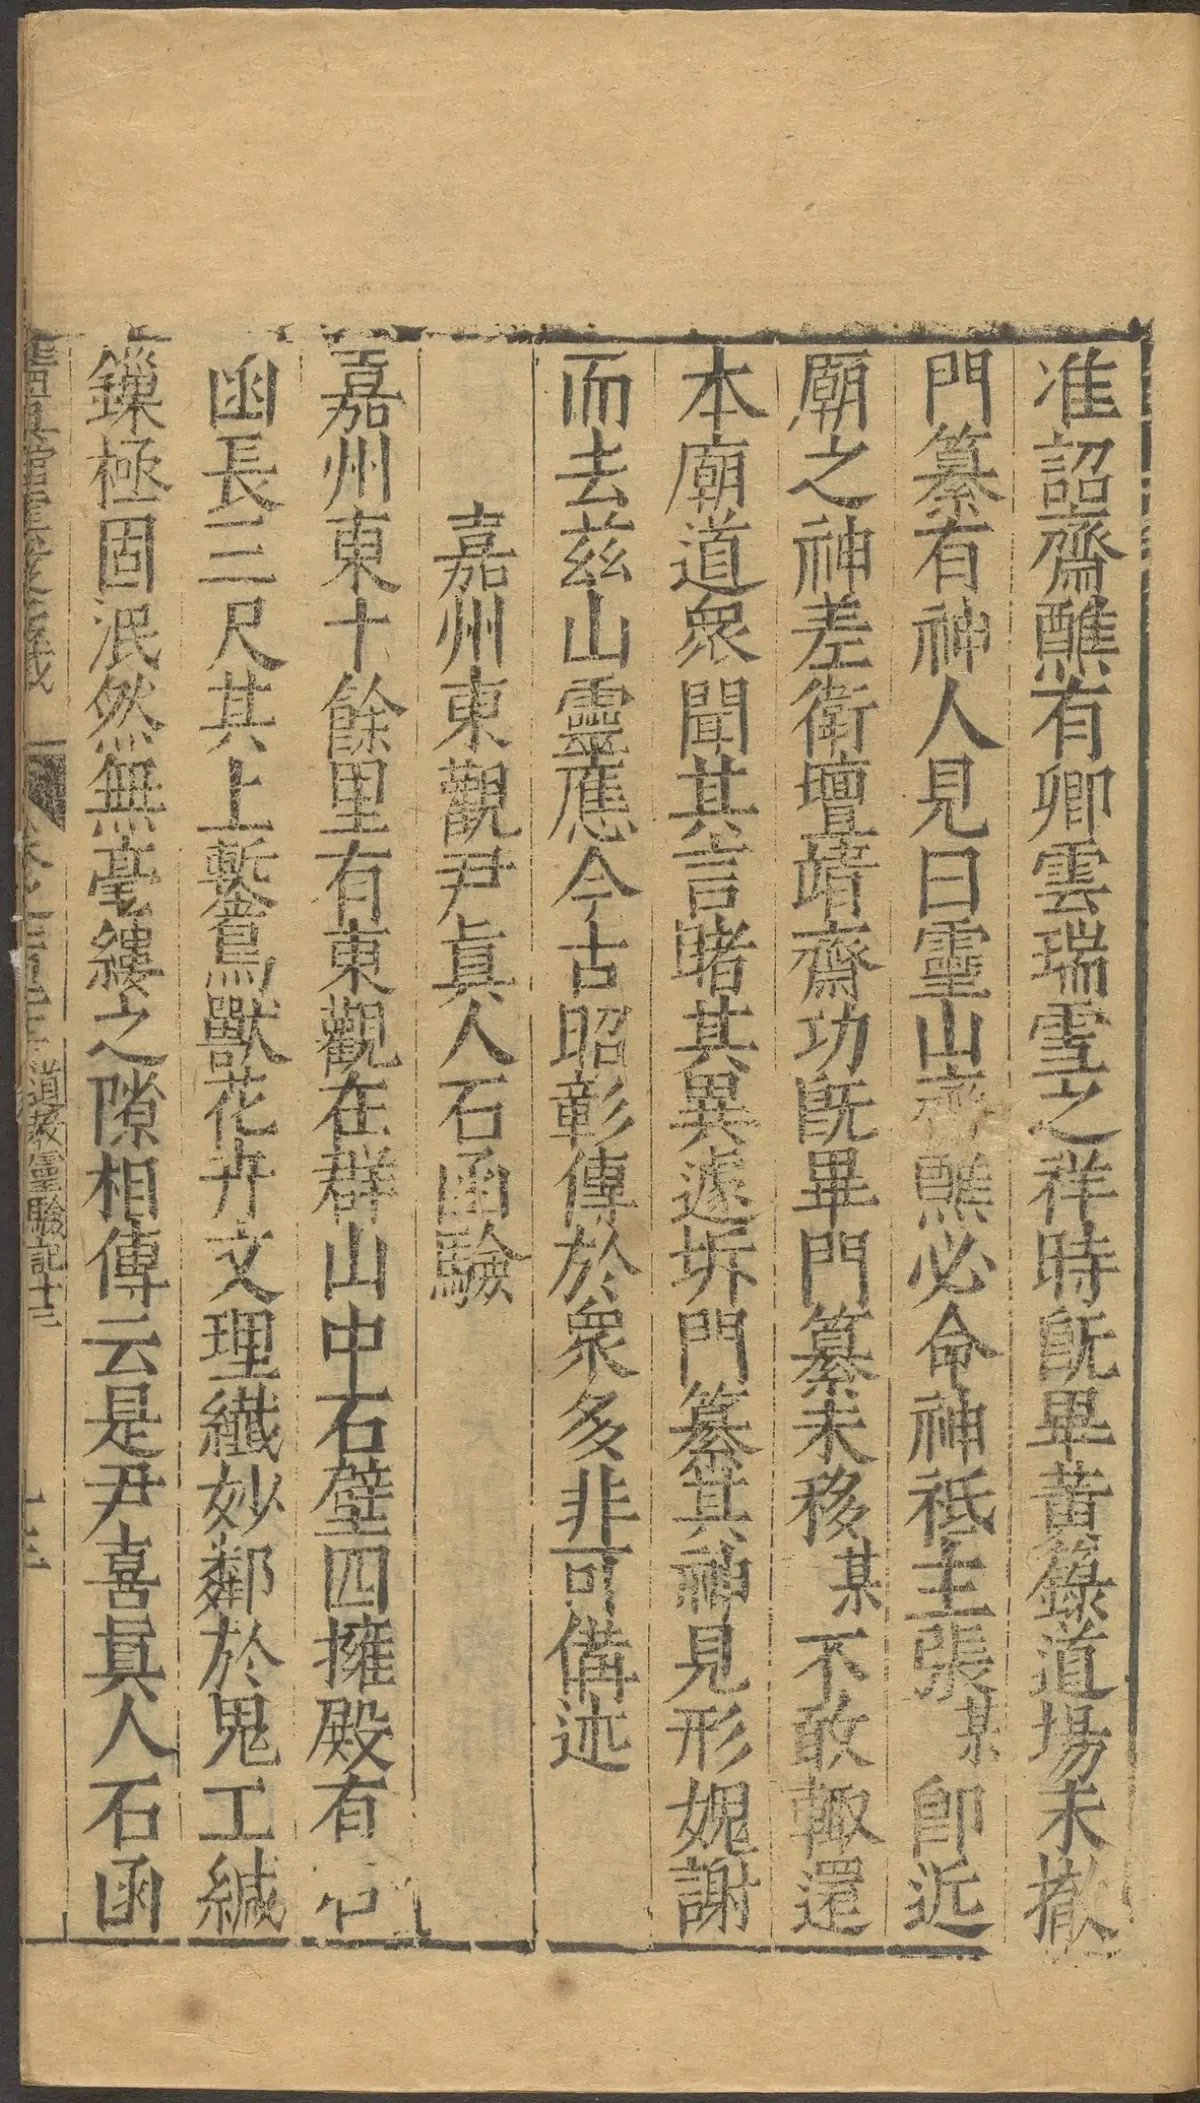 准詔齋醮有卿雲瑞雪之祥時旣畢黃籙道場未撤
門纂有神人見曰靈山齋醮必命神祗主張某即近
廟之神差衛壇靖齋功旣畢門纂未移某不敢輙還
本廟道衆聞其言睹其異遽拆門纂其神見形媿謝
而去茲山靈應今古昭彰傳於衆多非可備述
嘉州東觀尹眞人石函驗
嘉州東十餘里有東觀在群山中石壁四擁殿有石
函長三尺其上鏨鳥獸花卉文理纖妙鄰於鬼工緘
鏁極固泯然無毫縷之隙相傳云是尹喜眞人石函
道教靈驗記十三